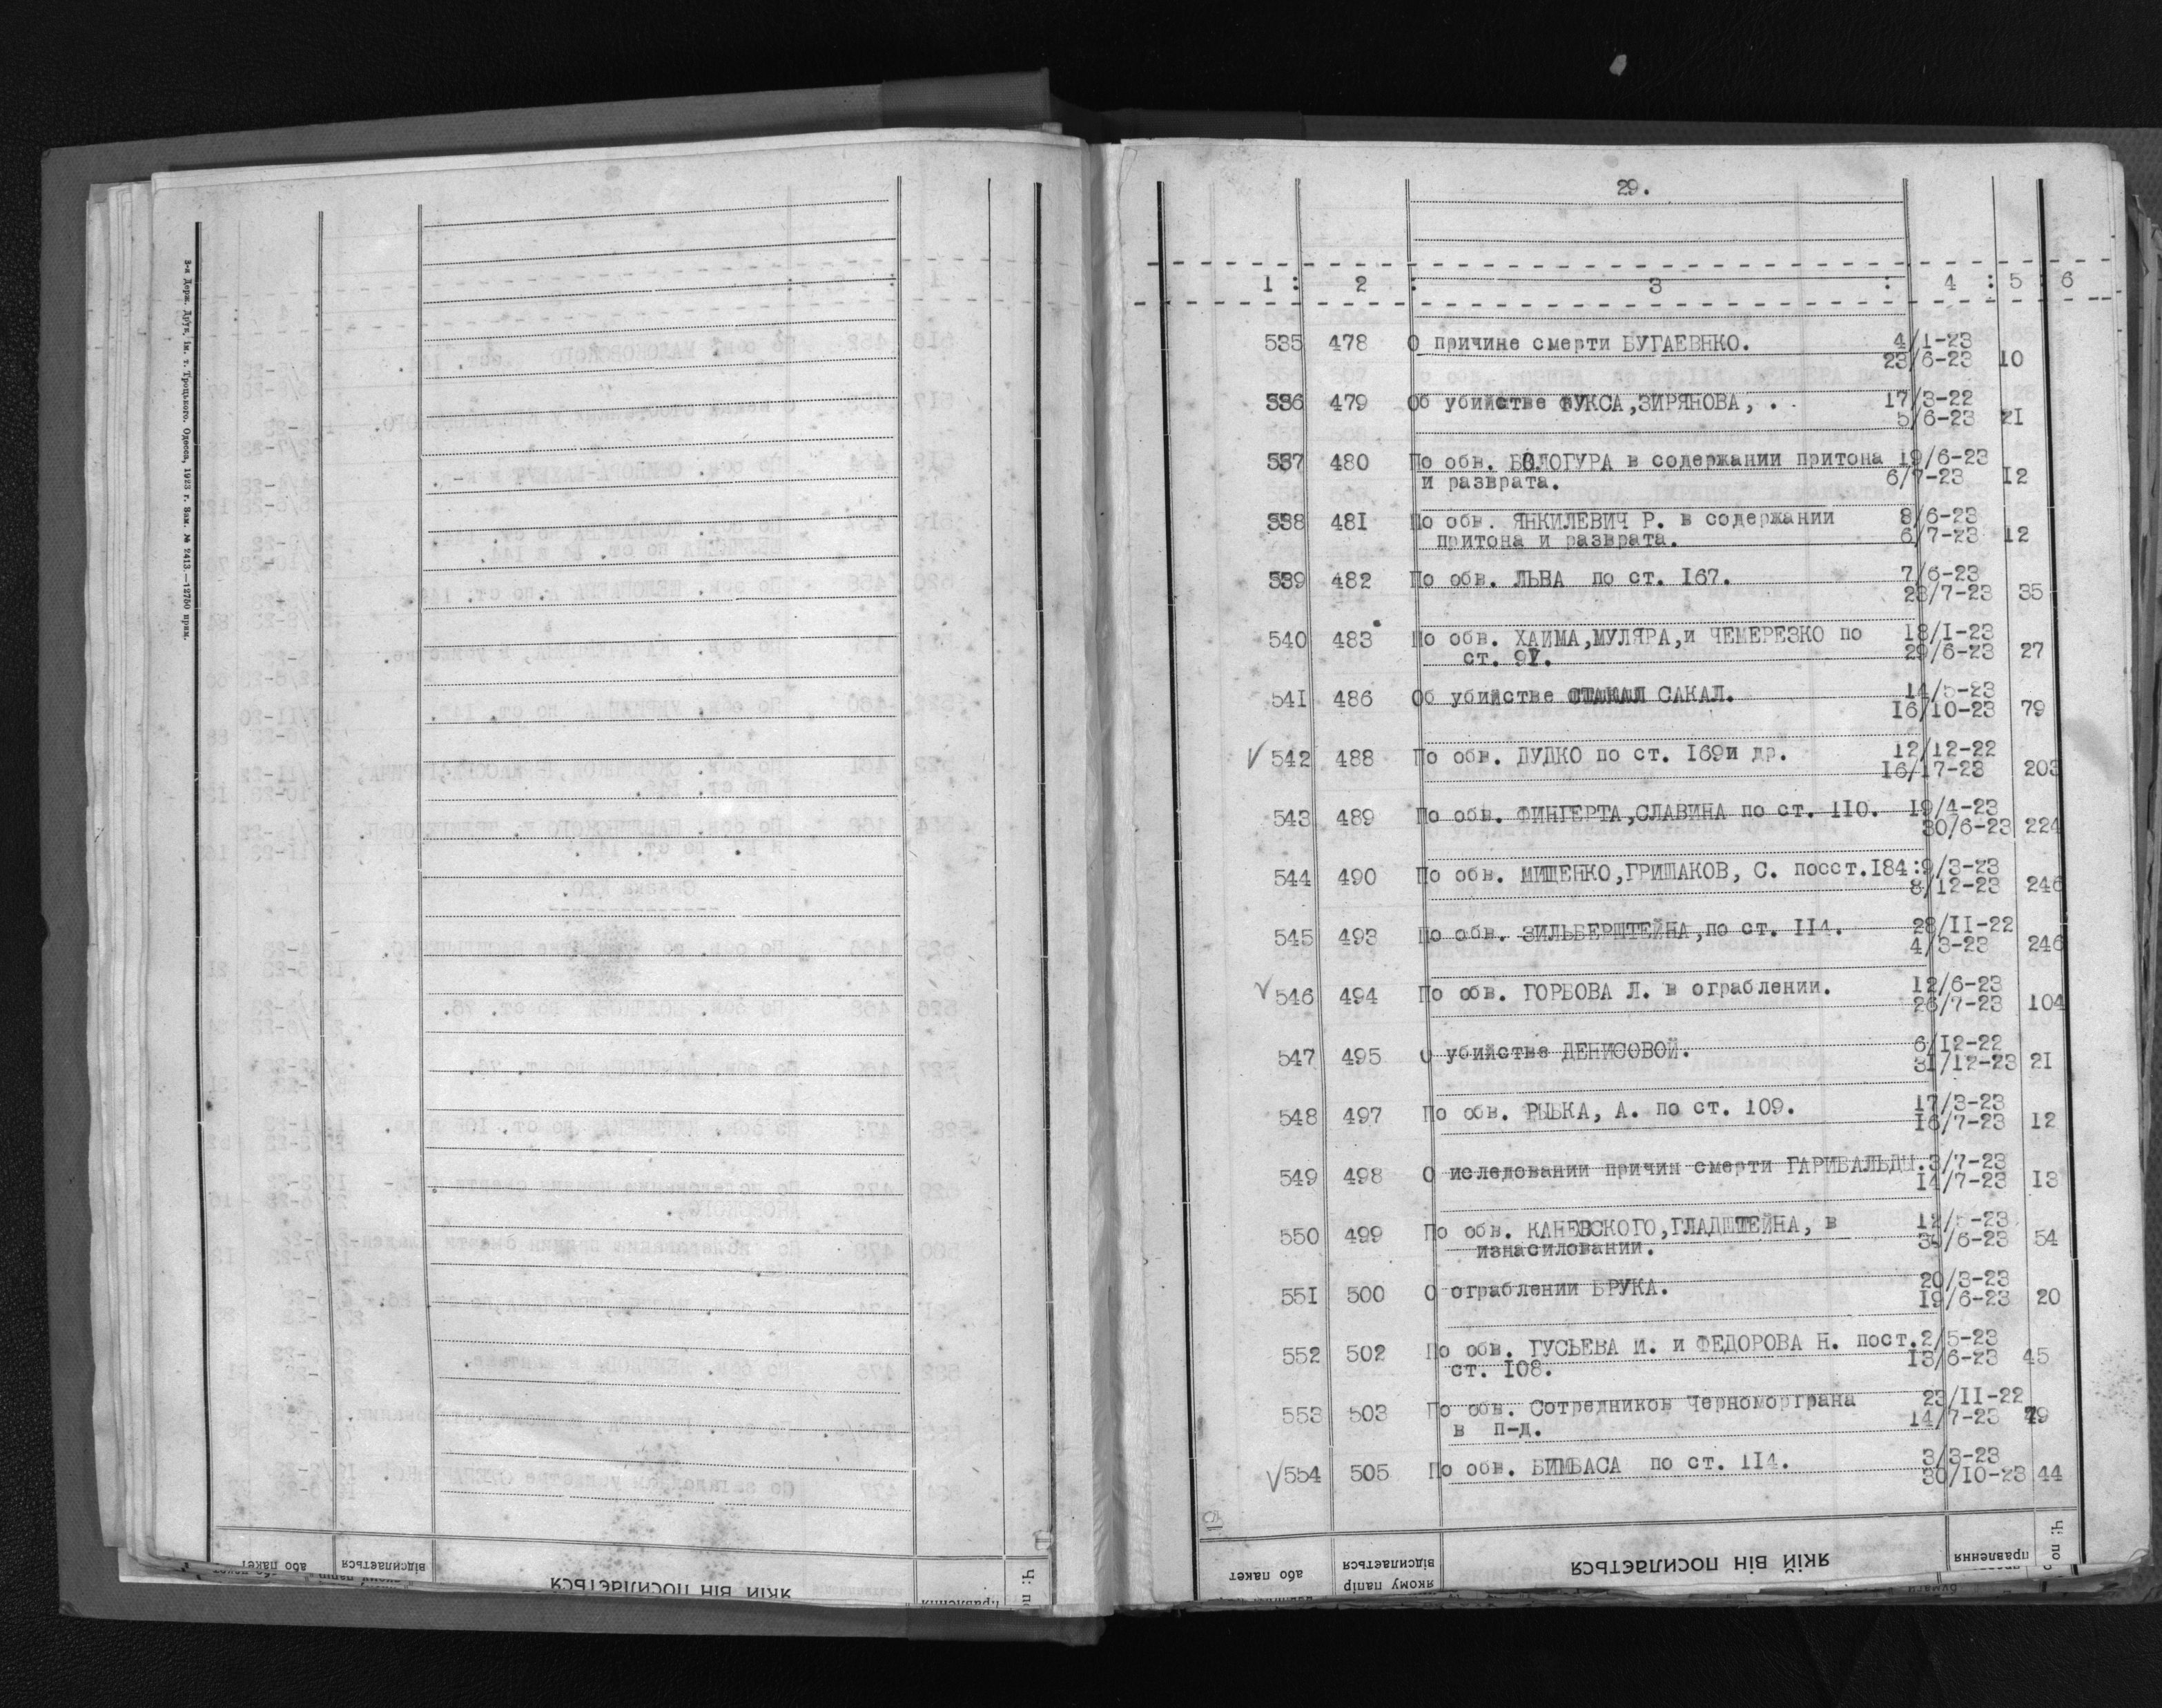 3-я Держ. Друк. ім. т. Троцького. Одесса, 1923 г. Зам. № 2413.—12750 прим.
або пакет
відсилається
якій він посилається
29.
1 : 2 : 3 : 4 : 5 : 6
535 478 О причине смерти БУГАЕВНКО. 4/1-23
23/6-23 10
536 479 Об убийстве ФУКСА,ЗИРЯНОВА, . 17/3-22
5/6-23 21
537 480 По обв. БОЛОГУРА в содержании притона 19/6-23
и разврата. 6/7-23 I2
538 48I По обв. ЯНКИЛЕВИЧ Р. в содержании 8/6-23
притона и разврата. 6/7-23 12
539 482 По обв. ЛЬВА по ст. I67. 7/6-23
23/7-23 35
540 483 По обв. ХАИМА,МУЛЯРА,и ЧЕМЕРЕЗКО по 18/I-23
ст. 9У. 29/6-23 27
54I 486 Об убийстве САКАЛ. 14/5-23
I6/10-23 79
542 488 По обв. ДУДКО по ст. I69и др. 12/12-22
I6/17-23 203
543 489 По обв. ФИНГЕРТА,СЛАВИНА по ст. 110. 19/4-23
30/6-23 224
544 490 По обв. МИЩЕНКО,ГРИШАКОВ, С. посст.I84:9/3-23
8/12-23 246
545 493 По обв. ЗИЛЬБЕРШТЕЙНА,по ст. II4. 28/II-22
4/3-23 246
546 494 По обв. ГОРБОВА Л. в ограблении. 12/6-23
26/7-23 104
547 495 О убийстве ДЕНИСОВОЙ. 6/I2-22
31/12-23 21
548 497 По обв. РЫБКА, А. по ст. 109. 17/3-23
16/7-23 12
549 498 О иследовании причин смерти ГАРИБАЛЬДЫ.3/7-23
14/7-23 I3
550 499 По обв. КАНЕВСКОГО,ГЛАДШТЕЙНА, в 12/5-23
изнасиловании. 30/6-23 54
55I 500 О ограблении БРУКА. 20/3-23
I9/6-23 20
552 502 По обв. ГУСЬЕВА И. и ФЕДОРОВА Н. пост.2/5-23
ст. I08. I3/6-23 45
553 503 По обв. Сотредников Черноморграна 23/II-22
в п-д. 14/7-23 49
554 505 По обв. БИМБАСА по ст. II4. 3/3-23
30/10-23 44
правлення
Ч. по
якій він посилається
відсилається
якому папір
або пакет